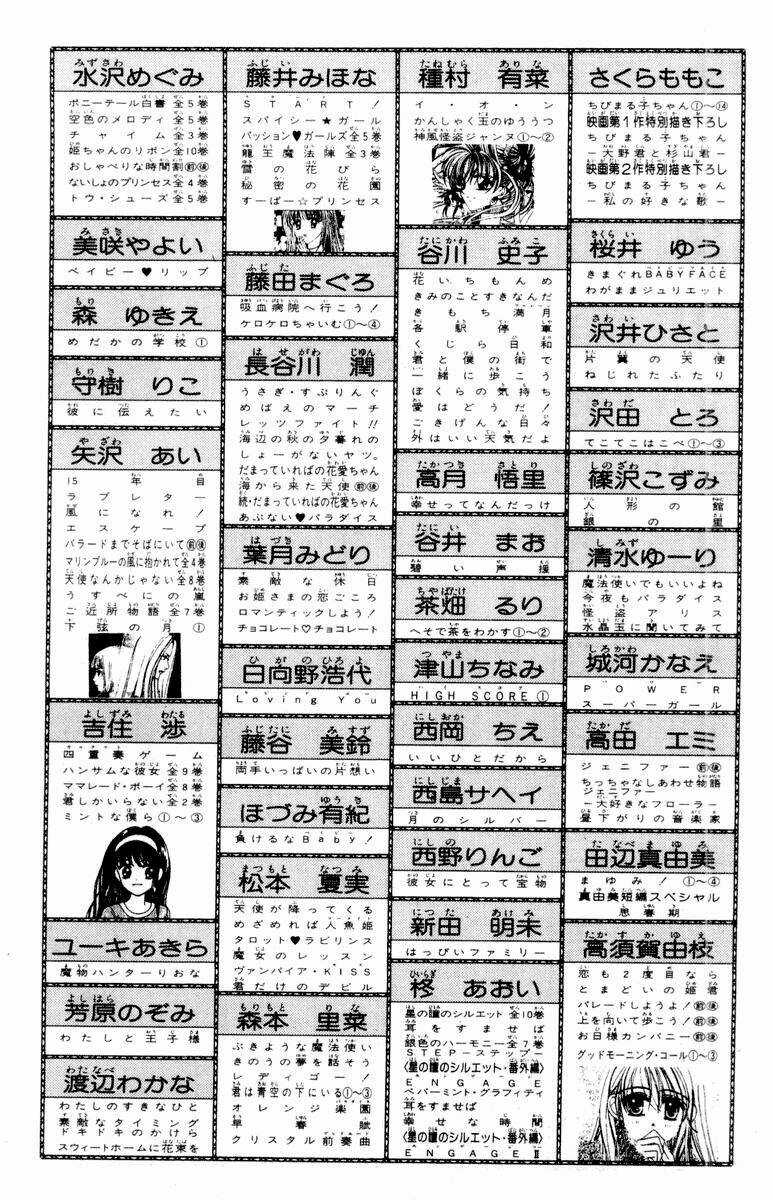 さくらももこ
ちびまる子ちゃん①〜⑭
映画第1作特別描き下ろし
ちびまる子ちゃん
ー大野君と杉山君ー
映画第2作特別描き下ろし
ちびまる子ちゃん
ー私の好きな歌ー
桜井 ゆう
きまぐれBABY FACE
わがままジュリエット
沢井ひさと
片翼の天使
ねじれたふたり
沢田 とろ
てこてこはこべ①〜③
篠沢こずみ
人形の館
銀の里
清水ゆーり
魔法使いでもいいよね
今夜もパラダイス
怪盗アリス
水晶玉に聞いてみて
城河かなえ
POWER
スーパーガール
高田 エミ
ジェニファー前後
ちっちゃなしあわせ物語
ジェニファー
ー大好きなフローラー
昼下がりの音楽家
田辺真由美
まゆみ!①〜④
真由美短編スペシャル
思春期
高須賀由枝
恋も2度目なら
とまどいの姫君
パレードしようよ!前後
上を向いて歩こう!前後
お日様カンパニー前後
グッドモーニング・コール①〜③
種村 有菜
イ・オ・ン
かんしゃく玉のゆううつ
神風怪盗ジャンヌ①〜②
谷川 史子
花いちもんめ
きみのことすきなんだ
きもち満月
各駅停車
くじら日和
君と僕の街で
一緒に歩こう
ぼくらの気持ち
愛はどうだ!
ごきげんな日々
外はいい天気だよ
高月 悟里
幸せってなんだっけ
谷井 まお
碧い声援
茶畑 るり
へそで茶をわかす①〜②
津山ちなみ
HIGH SCORE①
西岡 ちえ
いいひとだから
西島サヘイ
月のシルバー
西野りんご
彼女にとって宝物
新田 明未
はっぴいファミリー
柊 あおい
星の瞳のシルエット 全10巻
耳をすませば
銀色のハーモニー全7巻
STEP-ステップ-
〈星の瞳のシルエット・番外編〉
ENGAGE
ペパーミント・グラフィティ
耳をすませば
幸せな時間
〈星の瞳のシルエット・番外編〉
ENGAGE Ⅱ
藤井みほな
START!
スパイシー☆ガール
パッション♥ガールズ全5巻
龍王魔法陣全3巻
雪の花びら
秘密の花園
すーぱー☆プリンセス
藤田まぐろ
吸血病院へ行こう!
ケロケロちゃいむ①〜④
長谷川 潤
うさぎ・すぷりんぐ
めばえのマーチ
レッツファイト!!
海辺の秋の夕暮れの
しょーがないヤツ。
だまっていればの花愛ちゃん
海から来た天使前後
続・だまっていればの花愛ちゃん
あぶない♥パラダイス
葉月みどり
素敵な休日
お姫さまの恋ごころ
ロマンティックしよう!
チョコレート♡チョコレート
日向野浩代
Loving You
藤谷 美鈴
両手いっぱいの片想い
ほづみ有紀
負けるなBaby!
松本 夏実
天使が降ってくる
めざめれば人魚姫
タロット♥ラビリンス
魔女のレッスン
ヴァンパイア・KISS
君だけのデビル
森本 里菜
ぶきような魔法使い
きのうの夢を話そう
レディゴー!
君は青空の下にいる①〜③
オレンジ楽園
早春賦
クリスタル前奏曲
水沢めぐみ
ポニーテール白書 全5巻
空色のメロディ全5巻
チャイム全3巻
姫ちゃんのリボン全10巻
おしゃべりな時間割前後
ないしょのプリンセス全4巻
トウ・シューズ全5巻
美咲やよい
ベイビー♥リップ
森 ゆきえ
めだかの学校①
守樹 りこ
彼に伝えたい
矢沢 あい
15年目
ラブレター
風になれ!
エスケープ
バラードまでそばにいて前後
マリンブルーの風に抱かれて全4巻
天使なんかじゃない全8巻
うすべにの嵐
ご近所物語全7巻
下弦の月①
吉住 渉
四重奏ゲーム
ハンサムな彼女 全9巻
ママレード・ボーイ全8巻
君しかいらない全2巻
ミントな僕ら①〜③
ユーキあきら
魔物ハンターりおな
芳原のぞみ
わたしと王子様
渡辺わかな
わたしのすきなひと
素敵なタイミング
ドキドキのかけら
スウィートホームに花束を